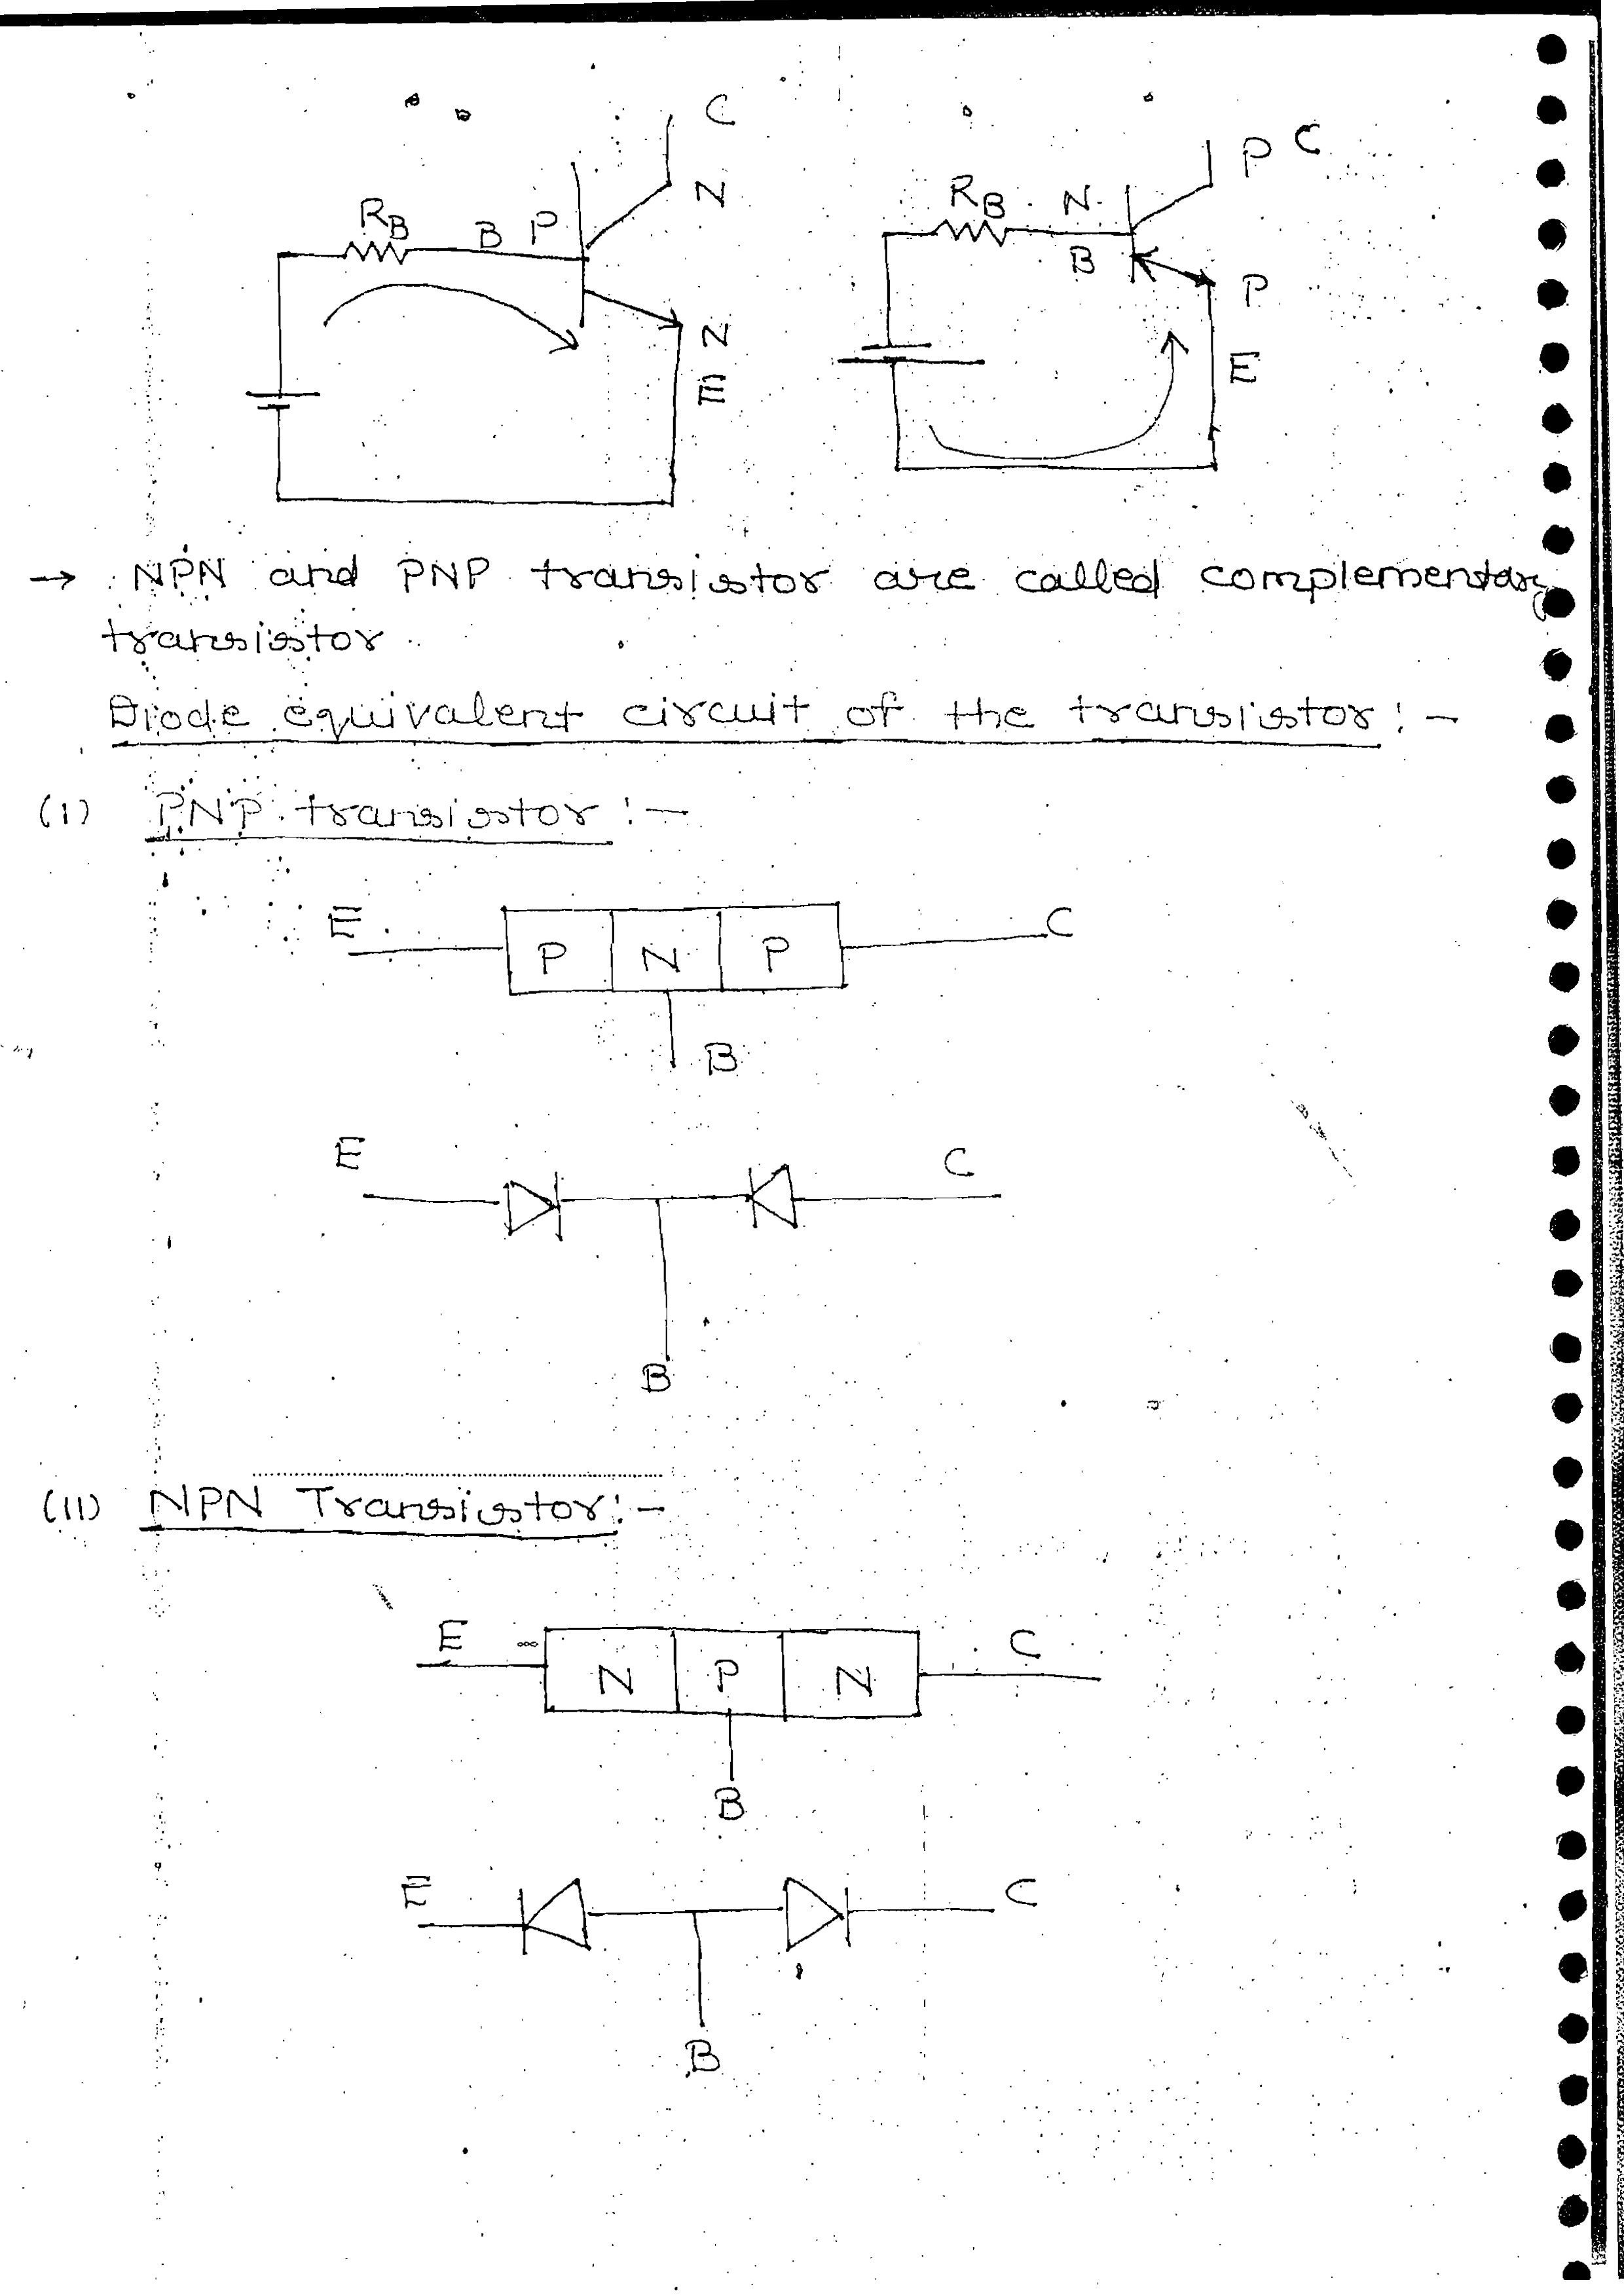 C
N
R_B B P
N
E
P C
R_B N
B
P
E
→ NPN and PNP transistor are called complementary
transistor
Diode equivalent circuit of the transistor :-
(I) PNP transistor :-
E P N P C
B
E C
B
(II) NPN Transistor :-
E N P N C
B
E C
B